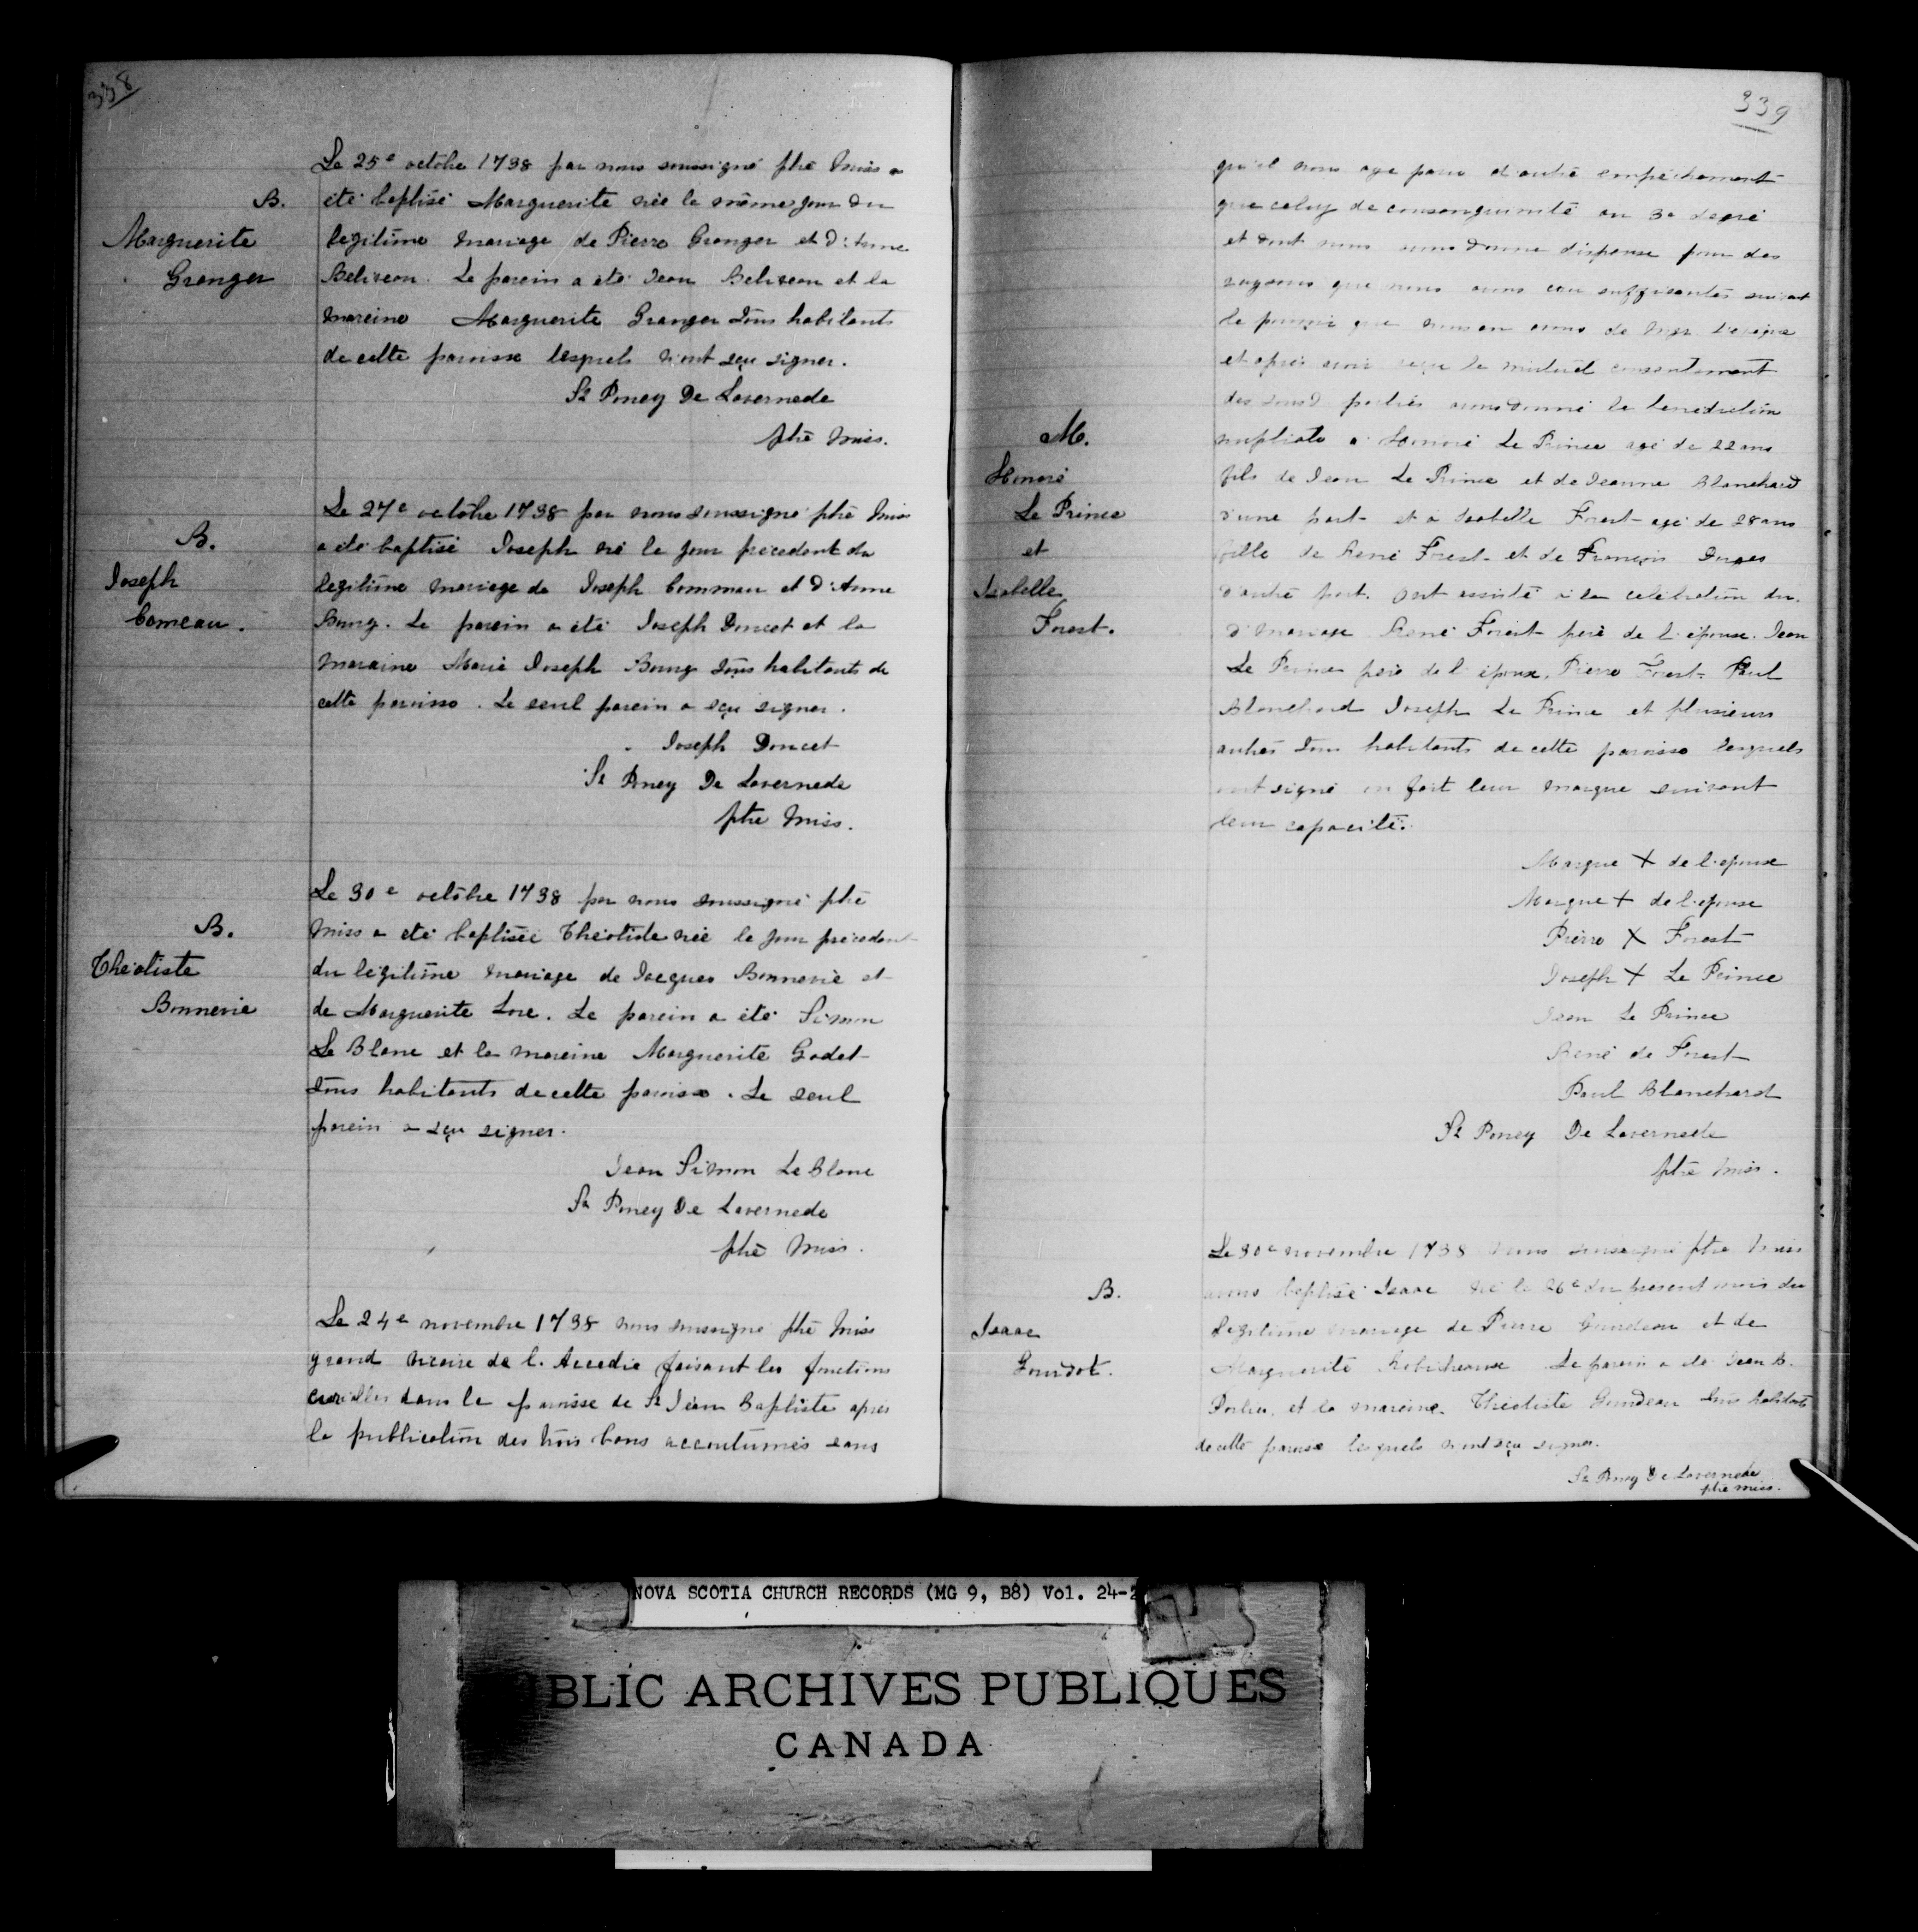 338
Le 25e octobre 1738 par nous soussigné ptre Miss a
B.
été baptisé Marguerite née le même jour du
Marguerite
legitime mariage de Pierre Granger et d'Anne
Granger
Beliveau. Le parein a été Jean Beliveau et la
mareine Marguerite Granger tous habitants
de cette paroisse lesquels n'ont sçu signer.
St Poncy De Lavernede
ptre Miss.
Le 27e octobre 1738 par nous soussigné ptre Miss
B.
a été baptisé Joseph né le jour précédent du
Joseph
legitime mariage de Joseph Commau et d'Anne
Comeau.
Bourg. Le parein a été Joseph Doucet et la
maraine Marie Joseph Bourg tous habitants de
cette paroisse. Le seul parein a sçu signer.
Joseph Doucet
St Poncy De Lavernede
ptre Miss.
Le 30e octobre 1738 par nous soussigné ptre
B.
Miss a été baptisée Théotiste née le jour précédent
Théotiste
du légitime mariage de Jacques Bonnevie et
Bonnevie
de Marguerite Lore. Le parein a été Simon
Le Blanc et la mareine Marguerite Godet
tous habitants de cette paroisse. Le seul
parein a sçu signer.
Jean Simon Le Blanc
St Poncy De Lavernede
ptre Miss.
Le 24e novembre 1738 nous soussigné ptre Miss
grand vicaire de l'Accadie faisant les fonctions
curialles dans la paroisse de St Jean Baptiste après
la publication des trois bans accoutumés sans
339
qu'il nous aye paru d'autre empêchement
que celuy de consanguinité au 3e degré
et dont nous avons donné dispense pour des
raysons que nous avons cru suffisantes suivant
le pouvoir que nous en avons de Mgr l'evêque
et après avoir reçu le mutuel consentement
des susd parties avons donné la benediction
M.
nuptiale a Honoré Le Prince agé de 22 ans
Honoré
fils de Jean Le Prince et de Jeanne Blanchard
Le Prince
d'une part et a Isabelle Forest agé de 28 ans
et
fille de René Forest et de François Dugas
Isabelle
d'autre part. Ont assisté à la celébration du.
Forest.
d'mariage René Forest père de l'épouse. Jean
Le Prince père de l'époux, Pierre Forest Paul
Blanchard Joseph Le Prince et plusieurs
autres tous habitants de cette paroisse lesquels
ont signé ou fait leur marque suivant
leur capacité.
Marque + de l'epoux
Marque + de l'epouse
Pierre X Forest
Joseph + Le Prince
Jean Le Prince
René de Forest
Paul Blanchard
St Poncy De Lavernede
ptre Miss.
Le 30e novembre 1738 nous soussigné ptre Miss
B.
avons baptisé Isaac né le 26e du present mois du
Isaac
legitime mariage de Pierre Gourdeau et de
Gourdot.
Marguerite Robicheaux Le parein a été Jean B.
et la mareine Théotiste Gourdeau tous habitants
de cette paroisse lesquels n'ont sçu signer.
St Poncy De Lavernede
ptre miss.
NOVA SCOTIA CHURCH RECORDS (MG 9, B8) Vol. 24-2
BLIC ARCHIVES PUBLIQUES
CANADA